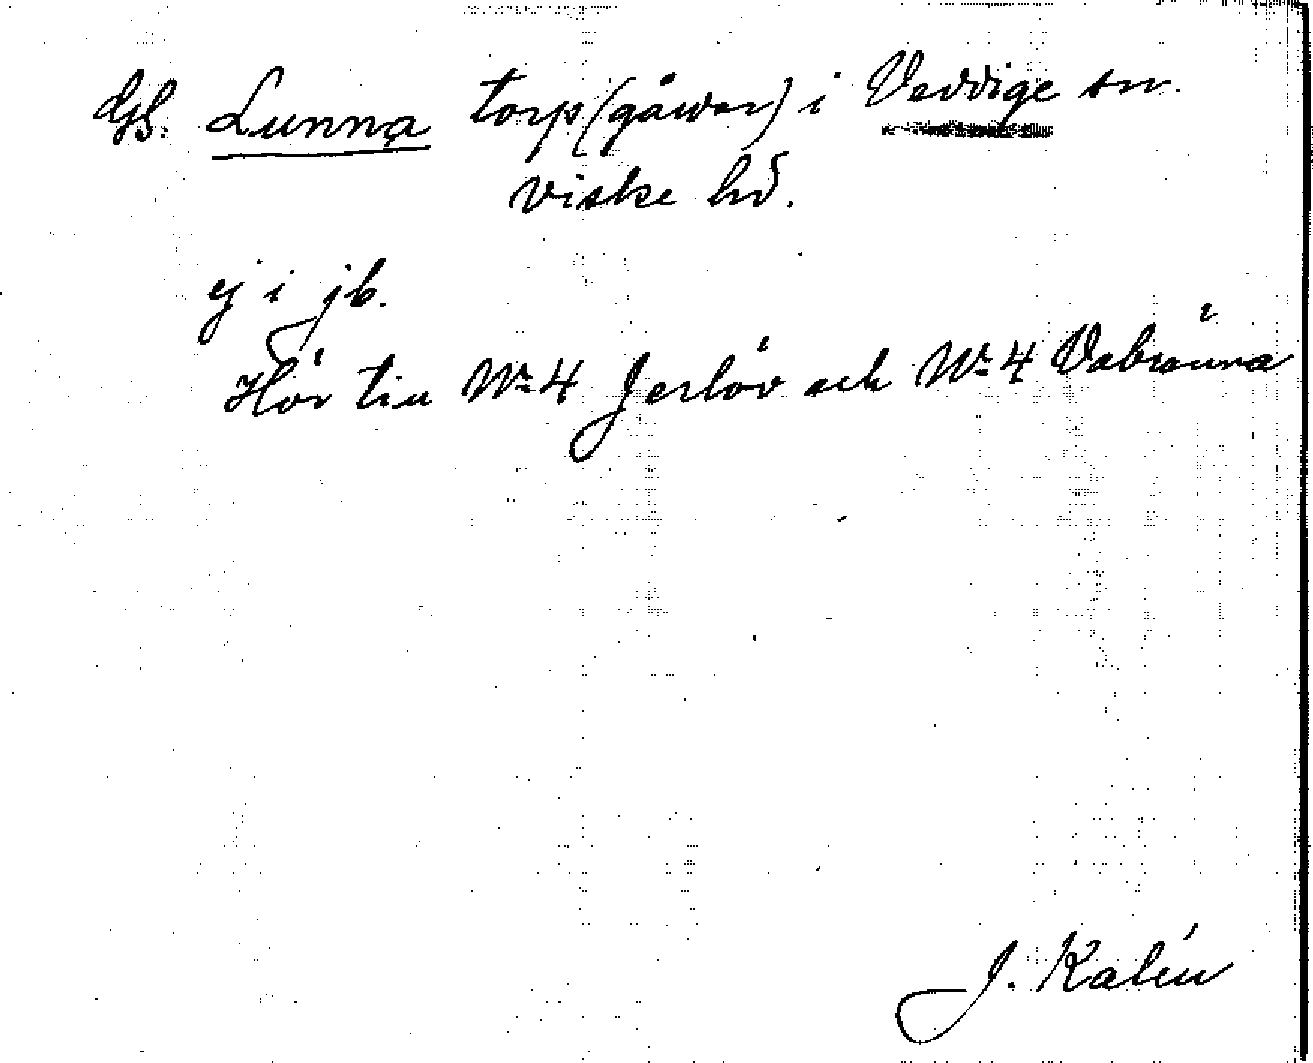 GS. Lunna torp (gårdar) i Veddige sn.
Viske hd.
ej i jb.
Hör till No 4 Jerlöv och No 4 Vabränna
J. Kalén